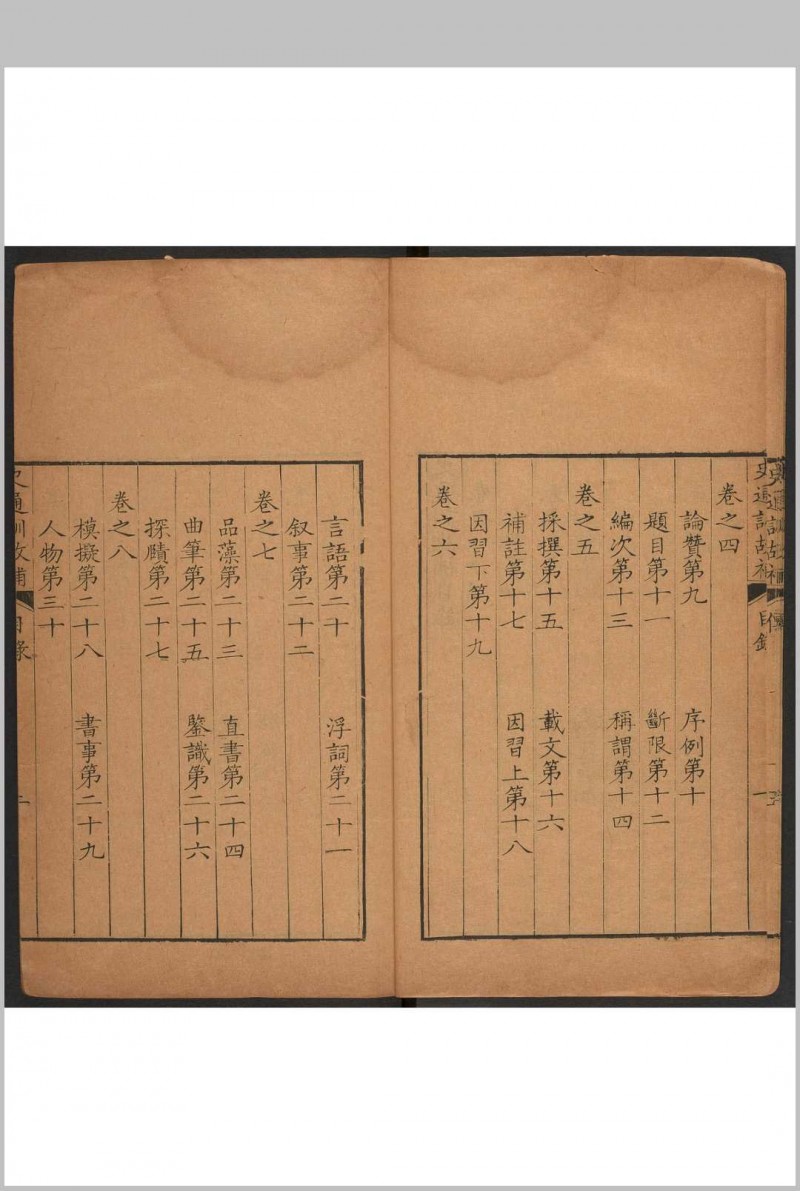 史通訓故補
目錄
一
卷之四
論贊第九 序例第十
題目第十一 斷限第十二
編次第十三 稱謂第十四
卷之五
採撰第十五 載文第十六
補註第十七 因習上第十八
因習下第十九
卷之六
言語第二十 浮詞第二十一
叙事第二十二
卷之七
品藻第二十三 直書第二十四
曲筆第二十五 鑒識第二十六
探賾第二十七
卷之八
模擬第二十八 書事第二十九
人物第三十
史通訓故補
目錄
二